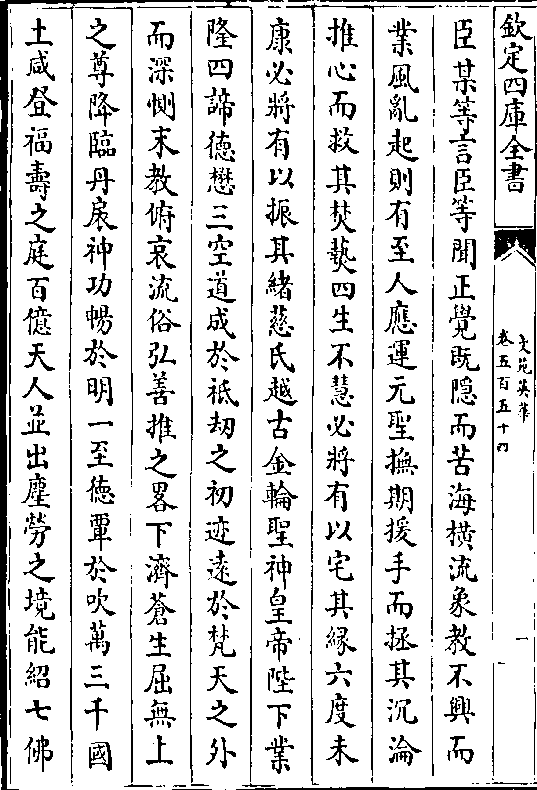 欽定四庫全書
文苑英華
卷五百五十四
一
臣某等言臣等聞正覺既隱而苦海橫流象教不興而
業風亂起則有至人應運元聖撫期援手而拯其沉淪
推心而救其焚爇四生不慧必將有以宅其緣六度未
康必將有以振其緒慈氏越古金輪聖神皇帝陛下業
隆四諦德懋三空道成於祇刼之初迹遠於梵天之外
而深惻末教俯哀流俗弘善推之畧下濟蒼生屈無上
之尊降臨丹扆神功暢於明一至德覃於吹萬三千國
土咸登福壽之庭百億天人並出塵勞之境能紹七佛